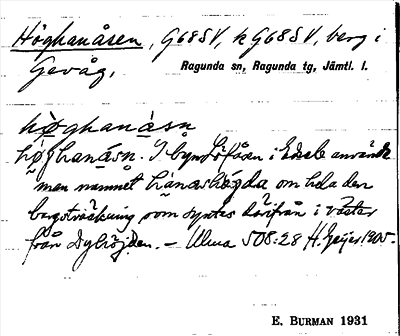 Höghanåsen, G68SV, k G68SV, berg i
Gevåg,
Ragunda sn, Ragunda tg, Jämtl. l.
høghanåsn
høghanåsn. I byn Döfåsen i använde
men namnet hånashögda om hela den
bergsträckning som syntes därifrån i väster
från Dyhöjden. – Ulma 508:28 H. Geijer 1905.
E. BURMAN 1931